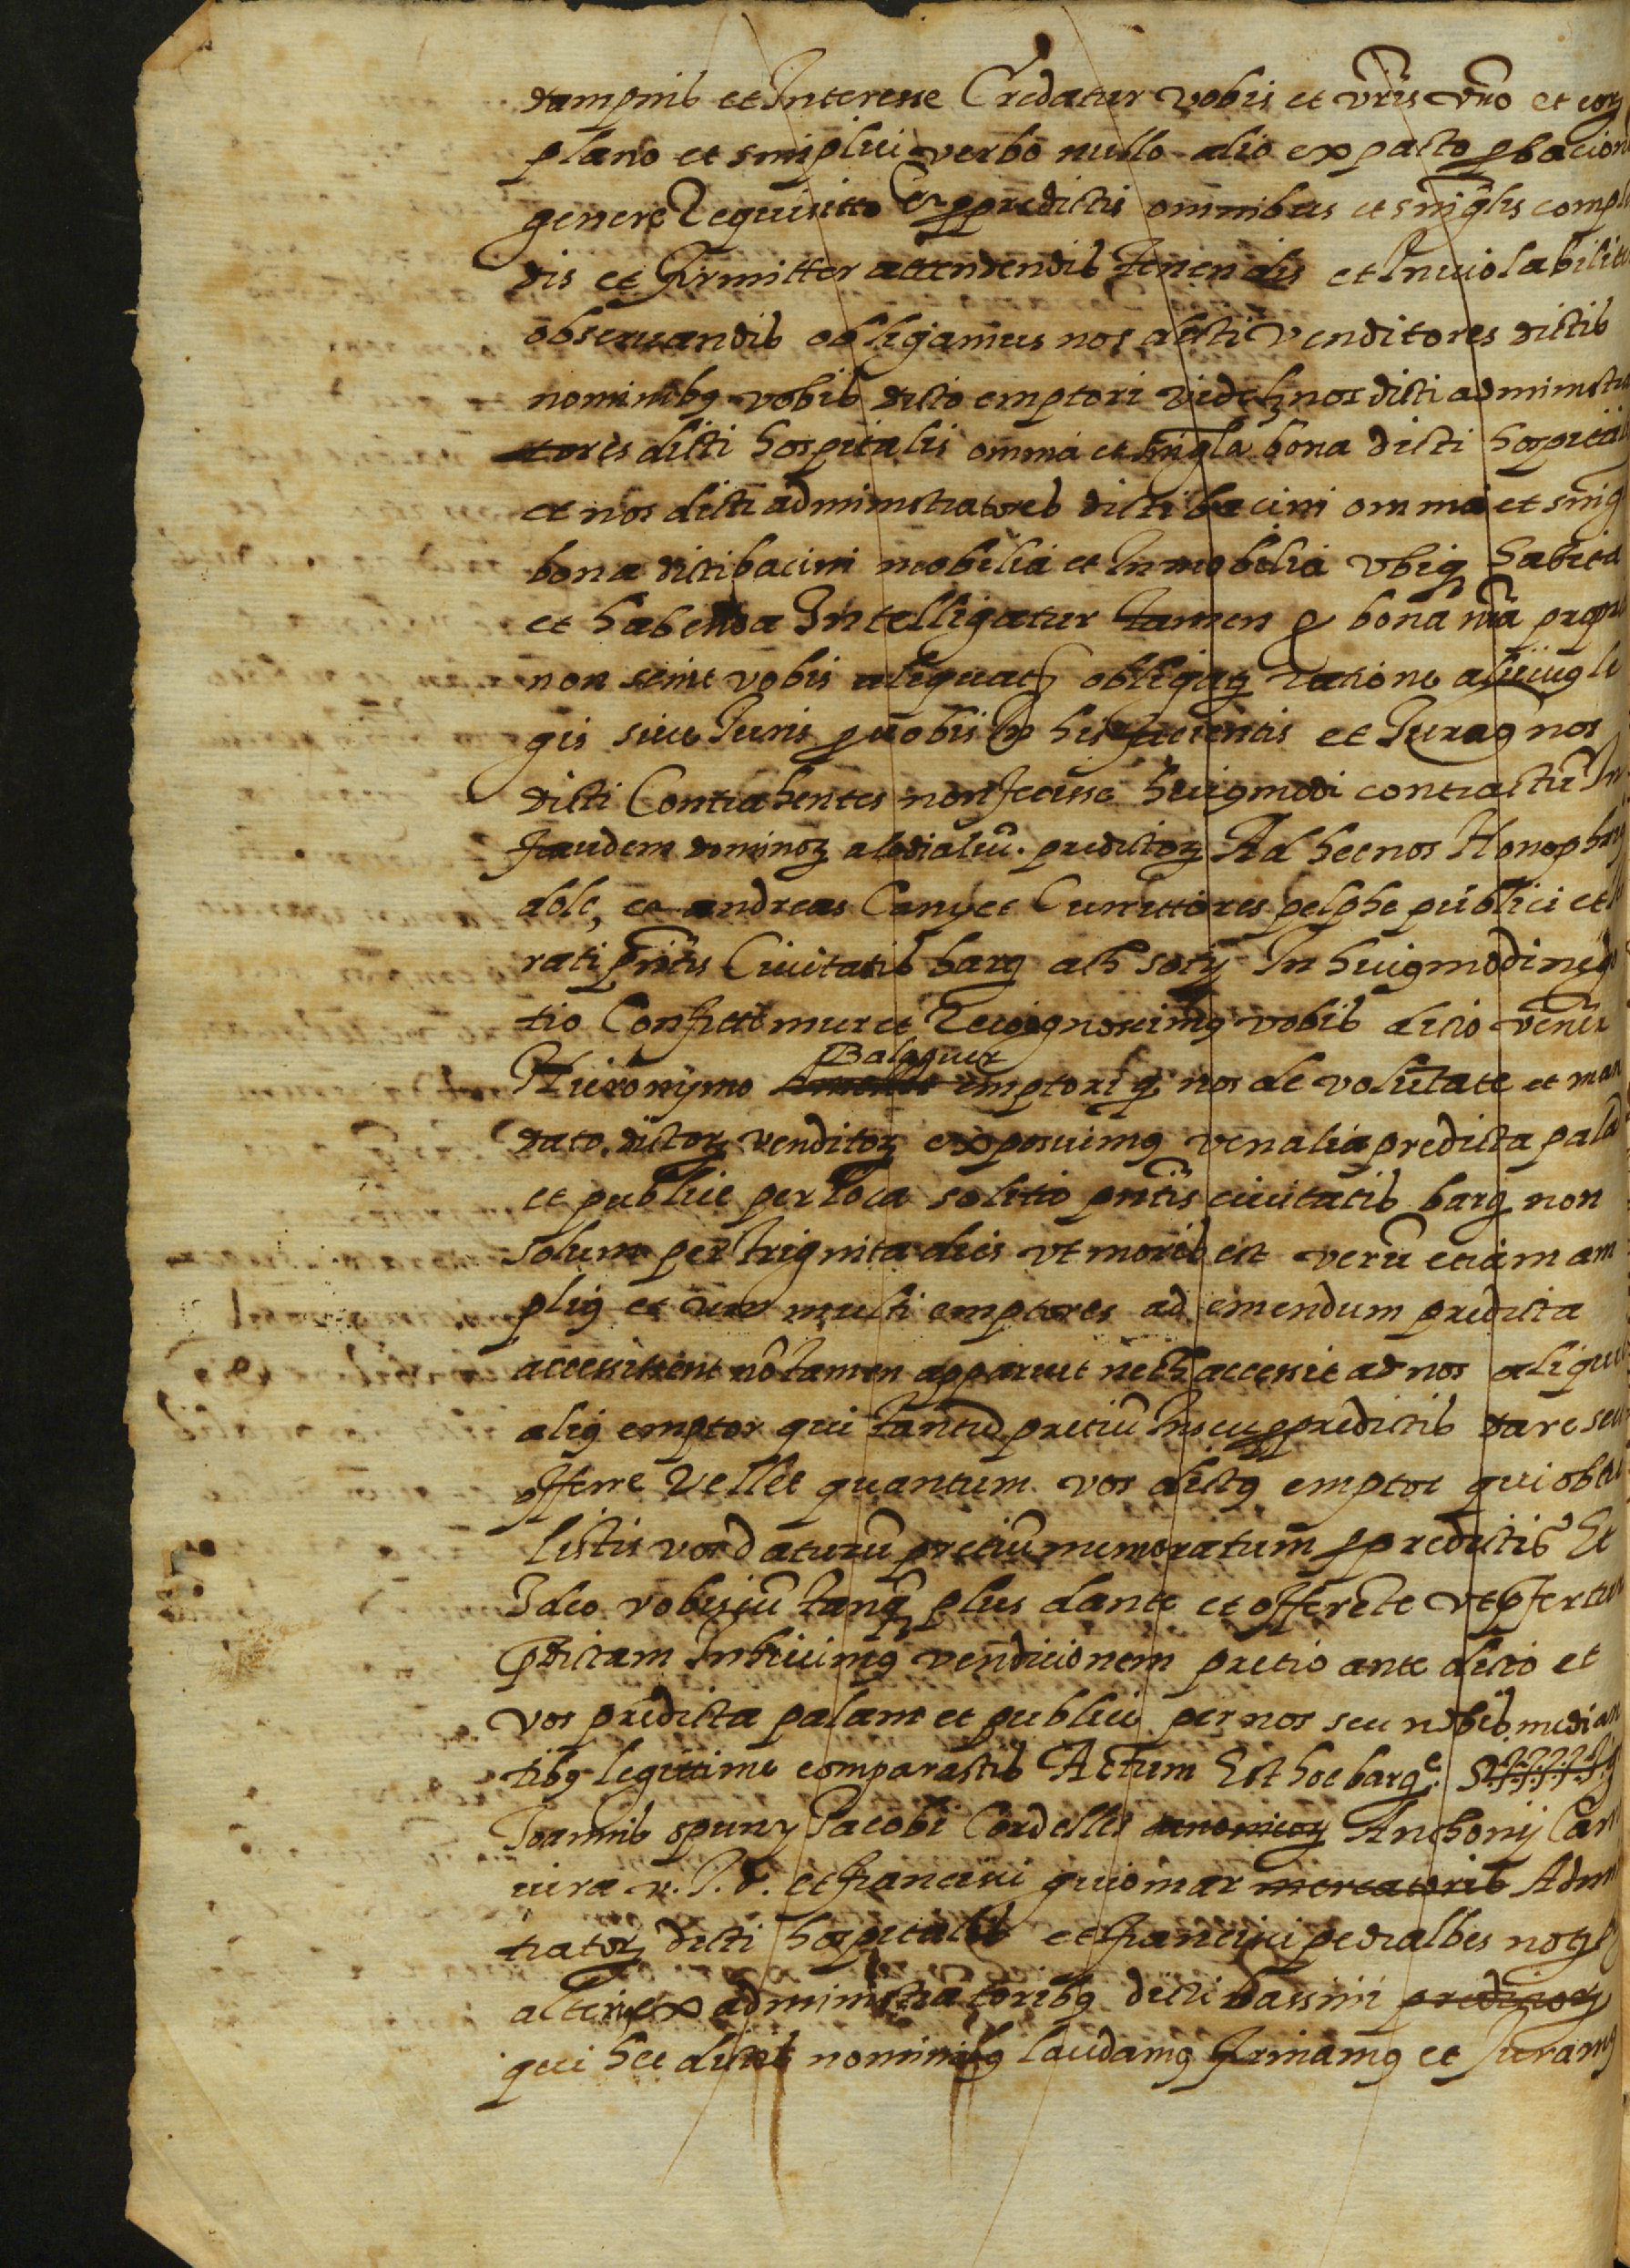 dampnis et Interesse Credatur vobis et vr̃is vr̃o et eorũ
plano et simplici verbo nullo alio expacto ꝓbacion
genere Requisitto Et ꝓ predictis omnibus et singlis comple
dis et firmitter attendendis tenendis et Inuiolabilite
obseruandis obligamus nos dicti venditores dictis
nominibꝯ vobis dicto emptori videlꝫ nos dicti administra
tores dicti hospitalis omnia et singla bona dicti hospitali
et nos dicti administratores dicti bacini omnia et sing
bona dicti bacini mobilia et Inmobilia vbiqꝫ habita
et habenda Intelligatur tamen ꝙ bona nr̃a propri
non sint vobis aliquatꝫ obligatꝫ Ratione alicuiꝯ le
gis siue Iuris ꝓ vobis In his facientis et Iuramꝯ nos
dicti Contrahentes non fecisse huiꝯmodi contractũ In
fraudem dominoꝝ alodialiũ predictoꝝ Ad hec nos Honoph
et andreas Canyet Curritores pelphe publici et Iu
rati pn̄tis Ciuitatis barqꝫ als sotij In huiꝯmodi nego
tio Confittemur et Recognoscimꝯ vobis dicto vener
Hieronymo Balaguer emptori qꝫ nos de volũtate et man
dato dictoꝝ venditoꝝ exposuimꝯ venalia predicta palã
et publice per loca solitto pn̄tis ciuitatis barqꝫ non
solum per trigинta dies vt moris est verũ etiam am
pliꝯ et multi emptores ad emendum predicta
accessissent nõ tamen apparuit necꝫ accessit ad nos aliquis
aliꝯ emptor qui tantũ pretiũ In seu ꝓ predictis dare seu
offerre vellet quantum vos dictꝯ emptor qui obtu
listis vos daturũ pretiũ memoratum ꝓ predictis Et
Ideo vobis cũ tanqꝫ plus dante et offerẽte vt ꝓfertur
ꝓdictam Inhiuimꝯ vendicionem pretio ante dicto et
vos predicta palam et publice per nos seu nobis median
tibꝯ legittime comparastis Actum Est hoc barqᵉ. Sig
Joannis spuny Jacobi Cordelles canonicoꝝ Anthonij Car
uira v. J. d. et francisci guiomar mercatoris Admi
tratoꝝ dicti hospitalis et francisci pedralbes notꝫ
alteriꝯ ex administratoribꝯ dicti bassini predictoꝝ
qui hec dictis nominibꝯ laudamꝯ firmamꝯ et Iuramꝯ